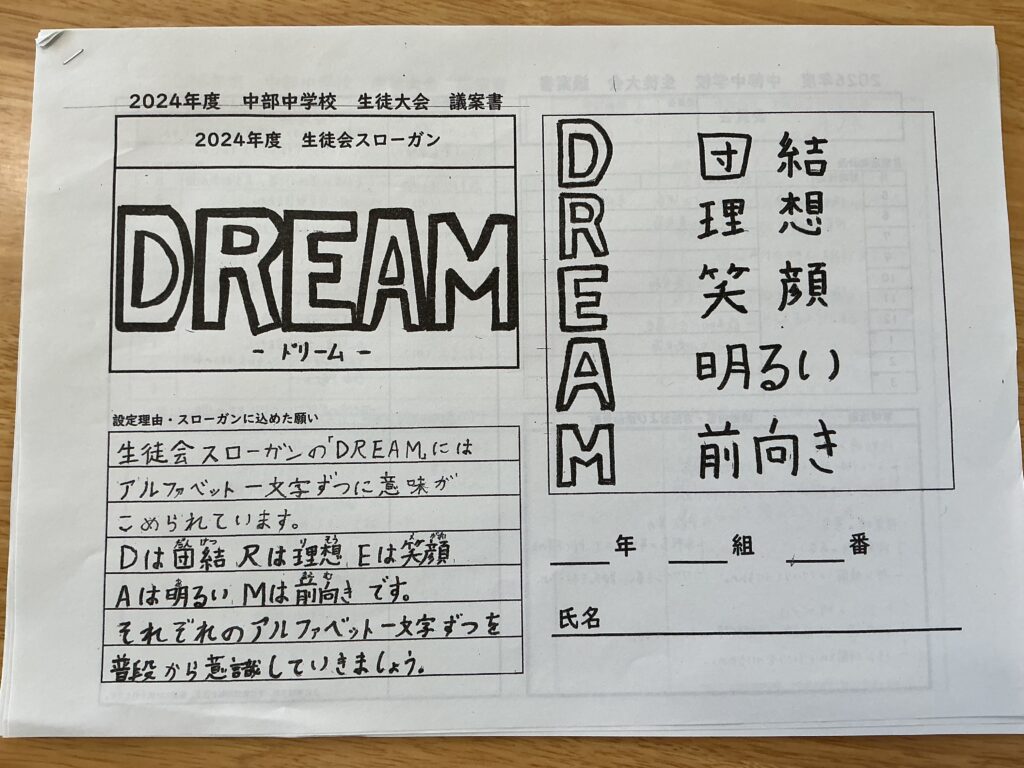 2024年度 中部中学校 生徒大会 議案書
2024年度 生徒会スローガン
DREAM
- ドリーム -
設定理由・スローガンに込めた願い
生徒会スローガンの「DREAM」には
アルファベット一文字ずつに意味が
こめられています。
Dは団結 Rは理想 Eは笑顔
Aは明るい Mは前向きです。
それぞれのアルファベット一文字ずつを
普段から意識していきましょう。
D 団結
R 理想
E 笑顔
A 明るい
M 前向き
年 組 番
氏名